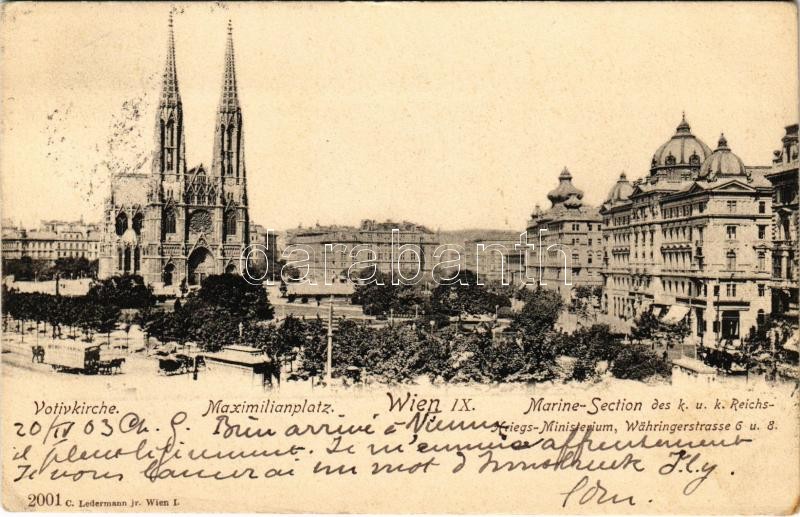 darabanth.com
Votivkirche. Maximilianplatz. Wien IX. Marine-Section des k. u. k. Reichs-
Kriegs-Ministerium, Währingerstrasse 6 u. 8.
20/IV 03 Ch. G. Bien arrivé à Vienne
il pleut Je m'ennuie affreusement
Je vous un mot d'Innsbruck
2001 C. Ledermann jr. Wien I.